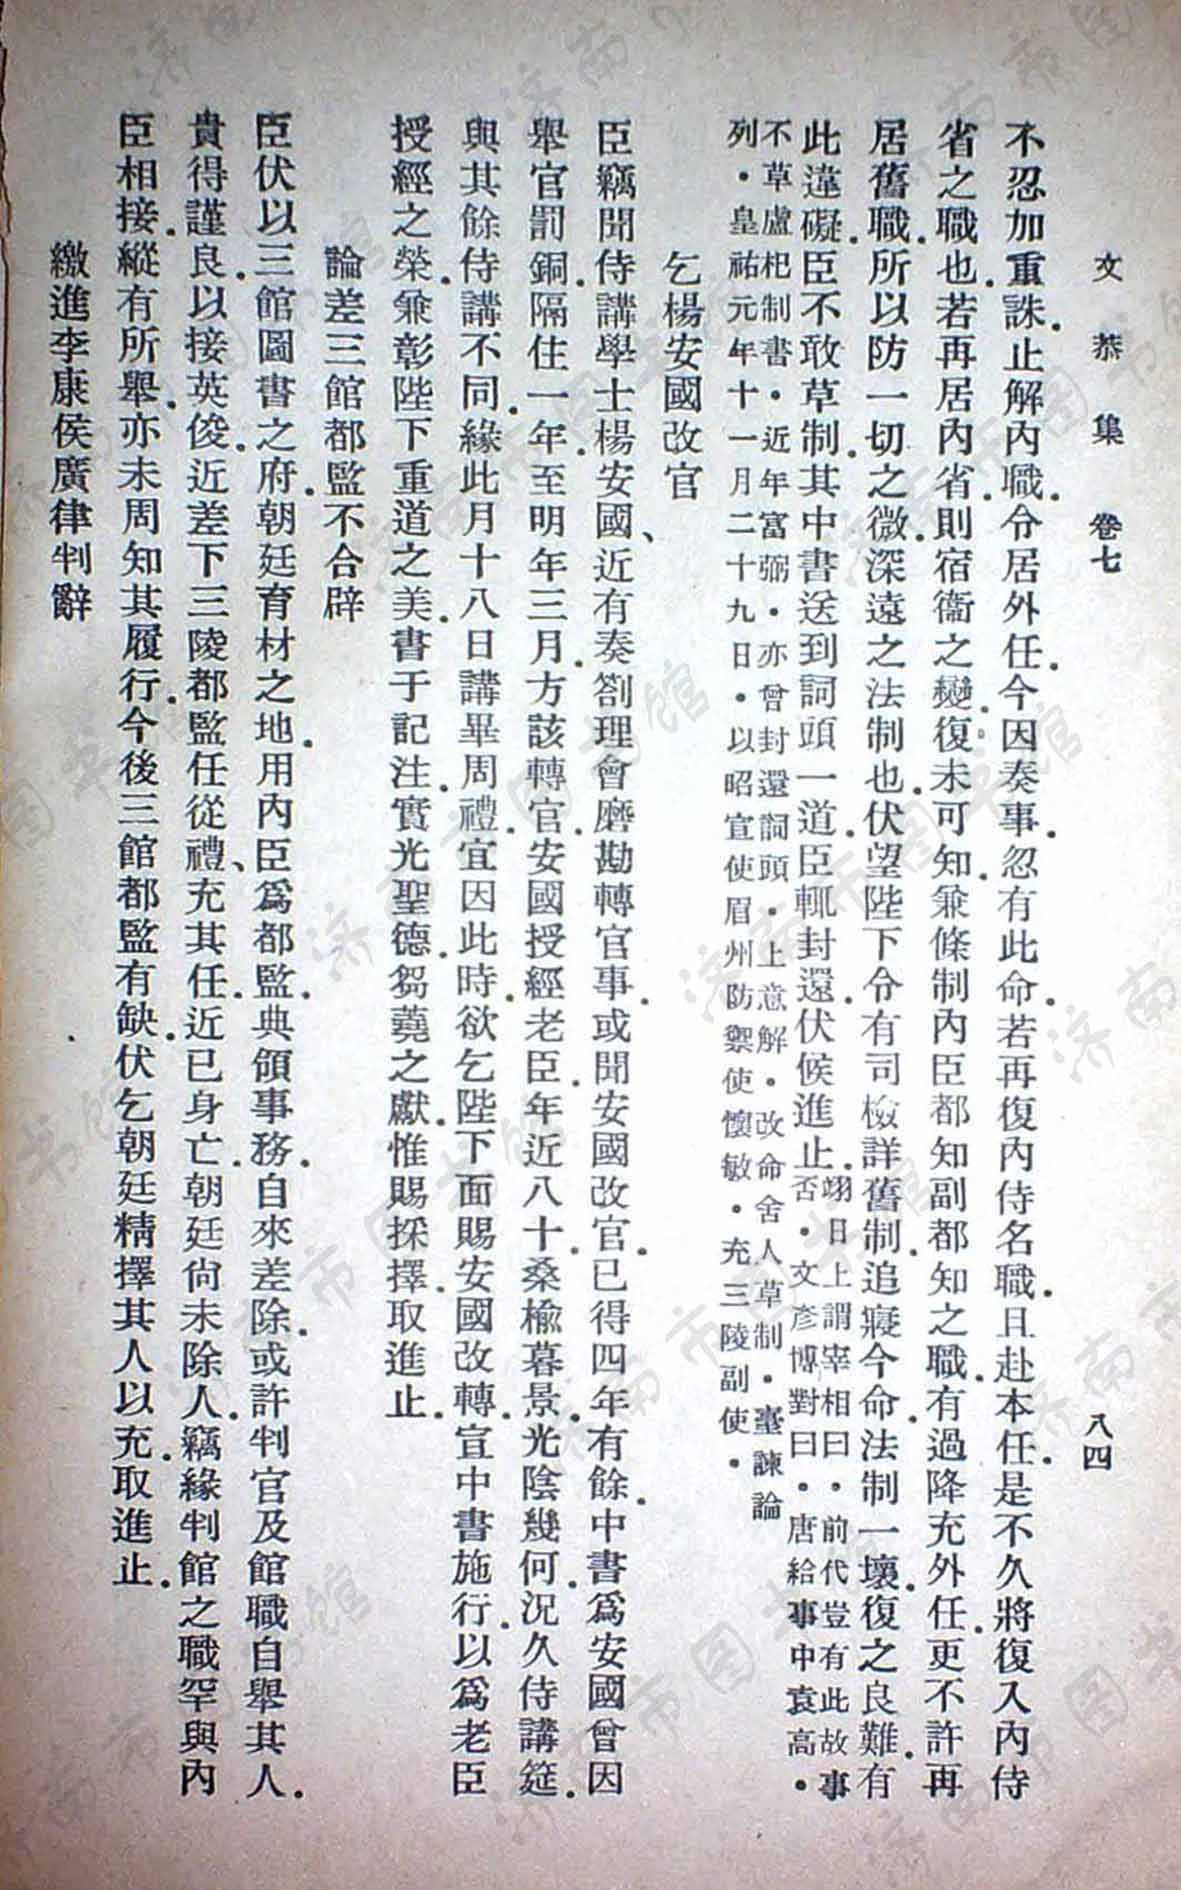 文恭集 卷七 八四
不忍加重誅．止解內職．令居外任．今因奏事．忽有此命．若再復內侍名職．且赴本任．是不久將復入內侍
省之職也．若再居內省．則宿衞之變．復未可知．兼條制內臣都知副都知之職．有過降充外任．更不許再
居舊職．所以防一切之微．深遠之法制也．伏望陛下令有司檢詳舊制．追寢今命．法制一壞．復之良難．有
此違礙．臣不敢草制．其中書送到詞頭一道．臣輒封還．伏候進止．翊日上謂宰相曰．前代豈有此故事
否．文彥博對曰．唐給事中袁高．
不草盧杞制書．近年富弼．亦曾封還詞頭．上意解．改命舍人草制．臺諫論
列．皇祐元年十一月二十九日．以昭宣使眉州防禦使懷敏．充三陵副使．
乞楊安國改官
臣竊聞侍講學士楊安國、近有奏劄理會磨勘轉官事．或聞安國改官．已得四年有餘．中書爲安國曾因
舉官罰銅．隔住一年．至明年三月．方該轉官．安國授經老臣．年近八十．桑楡暮景．光陰幾何．况久侍講筵．
與其餘侍講不同．緣此月十八日講畢周禮．宜因此時．欲乞陛下面賜安國改轉．宣中書施行．以爲老臣
授經之榮．兼彰陛下重道之美．書于記注．實光聖德．芻蕘之獻．惟賜採擇．取進止．
論差三館都監不合辟
臣伏以三館圖書之府．朝廷育材之地．用內臣爲都監．典領事務．自來差除．或許判官及館職自舉其人．
貴得謹良．以接英俊．近差下三陵都監任從禮、充其任．近已身亡．朝廷尙未除人．竊緣判館之職罕與內
臣相接．縱有所舉．亦未周知其履行．今後三館都監有缺．伏乞朝廷精擇其人以充．取進止．
繳進李康侯廣律判辭